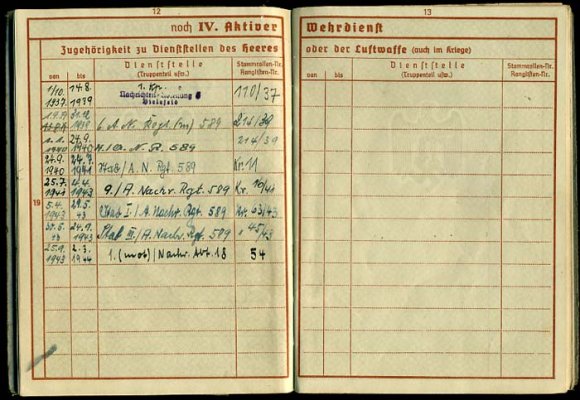 12
noch IV. Aktiver
Zugehörigkeit zu Dienststellen des Heeres
von bis Dienststelle (Truppenteil usw.) Stammrollen-Nr. Ranglisten-Nr.
1/10. 1937 14.8. 1939 1. Kp. Nachrichten-Abteilung 6 Bielefeld 110/37
1939 6 A. N. Rgt. 589
1940 24.9. 1940 A. N. R. 589 214/39
24.9. 1940 24. Stab/A. N. Rgt. 589 Nr. 11
25.7. 4.4. 1943 9./A. Nachr. Rgt. 589 Nr.
19
5.4. 1943 29.5. 43 Stab I./A. Nachr. Rgt. 589 Nr. 63/43
24.9. 1943 Stab III/A. Nachr. Rgt. 589 " 45/43
25.9. 1943 2.3. 1944 1. (mot)/Nachr. Abt. 18 54
13
Wehrdienst
oder der Luftwaffe (auch im Kriege)
von bis Dienststelle (Truppenteil usw.) Stammrollen-Nr. Ranglisten-Nr.